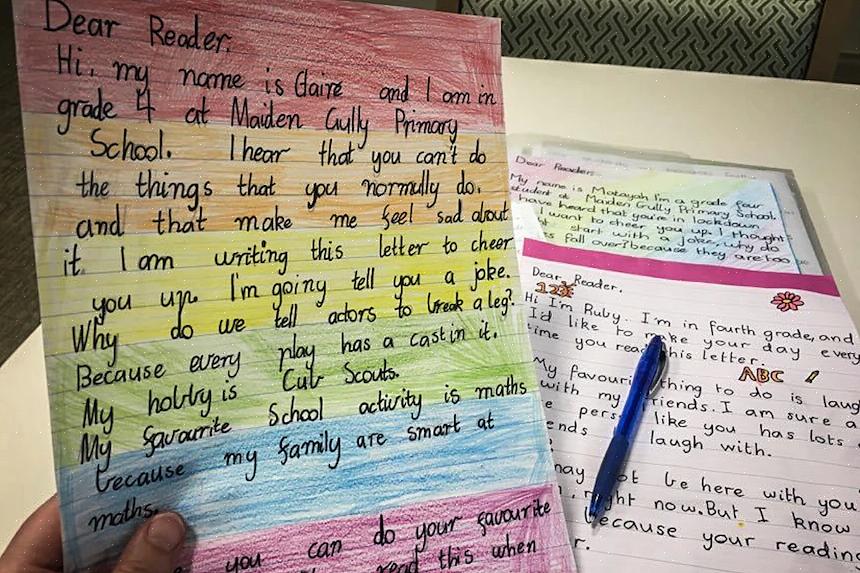 Dear Reader.
Hi, my name is Claire and I am in
grade 4 at Maiden Gully Primary
School. I hear that you can't do
the things that you normully do.
and that make me feel sad about
it. I am writing this letter to cheer
you up. I'm going tell you a joke.
Why do we tell actors to break a leg?
Because every play has a cast in it.
My hobby is Cub Scouts.
My favourite School activity is maths
because my family are smart at
maths.
you can do your favourite
read this when
Dear Reader.
My name is I'm a grade four
student at Maiden Gully Primary School.
have hear that you're in lockdown
I want to cheer you up. I thought
start with a joke, why do
fall over? because they are too
Dear Reader.
123
Hi I'm Ruby. I'm in fourth grade, and
I'd like to make your day every
time you read this letter.
ABC
My favourite thing to do is
with my friends. I am sure a
like you has lots
laugh with.
not be here with you
right now. But I know
because your reading